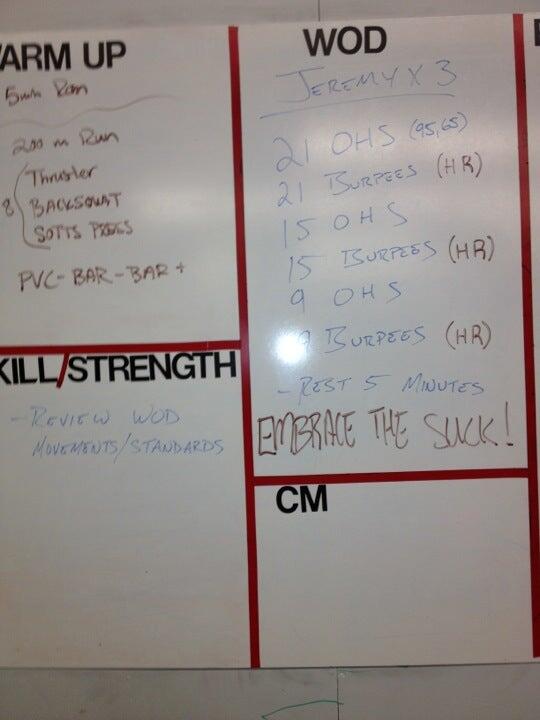 ARM UP
5min Run
200 m Run
Thruster
8 BACKSQUAT
SOTTS PRESS
PVC-BAR-BAR+
KILL/STRENGTH
-REVIEW WOD
MOVEMENTS/STANDARDS
WOD
JEREMY X 3
21 OHS (95,65)
21 BURPEES (HR)
15 OHS
15 BURPEES (HR)
9 OHS
9 BURPEES (HR)
-REST 5 MINUTES
EMBRACE THE SUCK!
CM